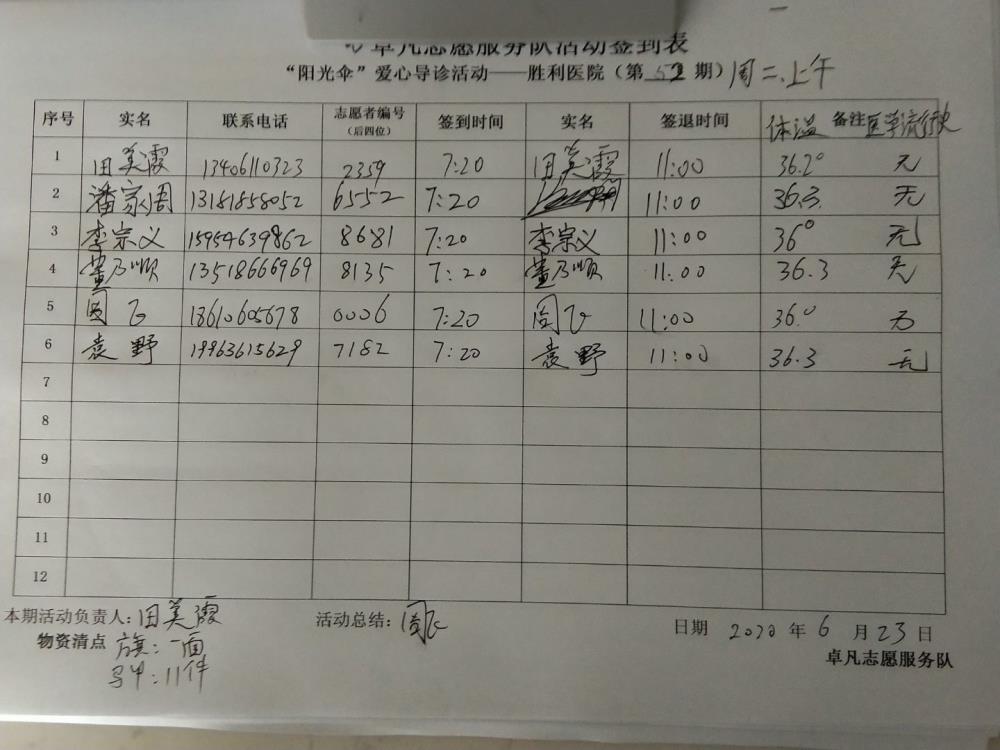 卓凡志愿服务队活动签到表
“阳光伞”爱心导诊活动——胜利医院（第52期）周二、上午
序号 实名 联系电话 志愿者编号（后四位） 签到时间 实名 签退时间 体温 备注 医学流行史
1 田美霞 13406110323 2359 7:20 田美霞 11:00 36.2° 无
2 潘家周 13181858052 6552 7:20 11:00 36.3 无
3 李宗义 15954639862 8681 7:20 李宗义 11:00 36° 无
4 董乃顺 13518666969 8135 7:20 董乃顺 11:00 36.3 无
5 周飞 13610605678 0006 7:20 周飞 11:00 36.° 无
6 袁野 19963615629 7182 7:20 袁野 11:00 36.3 无
7
8
9
10
11
12
本期活动负责人：田美霞 活动总结：周飞 日期 2020年6月23日
物资清点 旗：一面 卓凡志愿服务队
马甲：11件